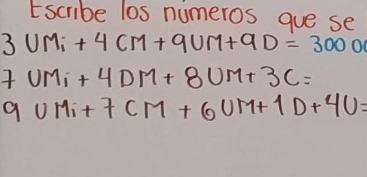 Escribe los números que se
3 UMi + 4 CM + 9UM + 9D = 300 00
7 UMi + 4DM + 8UM + 3C =
9 UMi + 7 CM + 6UM + 1D + 4U =